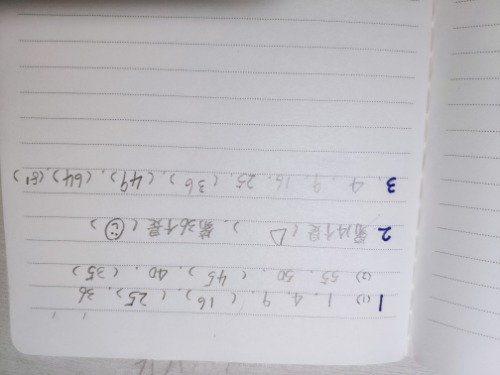 1 (1) 1. 4. 9. (16). (25). 36
(2) 55. 50. (45). 40. (35)
2 第14个是(△). 第36个是(☺)
3. 4. 9. 16. 25. (36). (49). (64). (81)